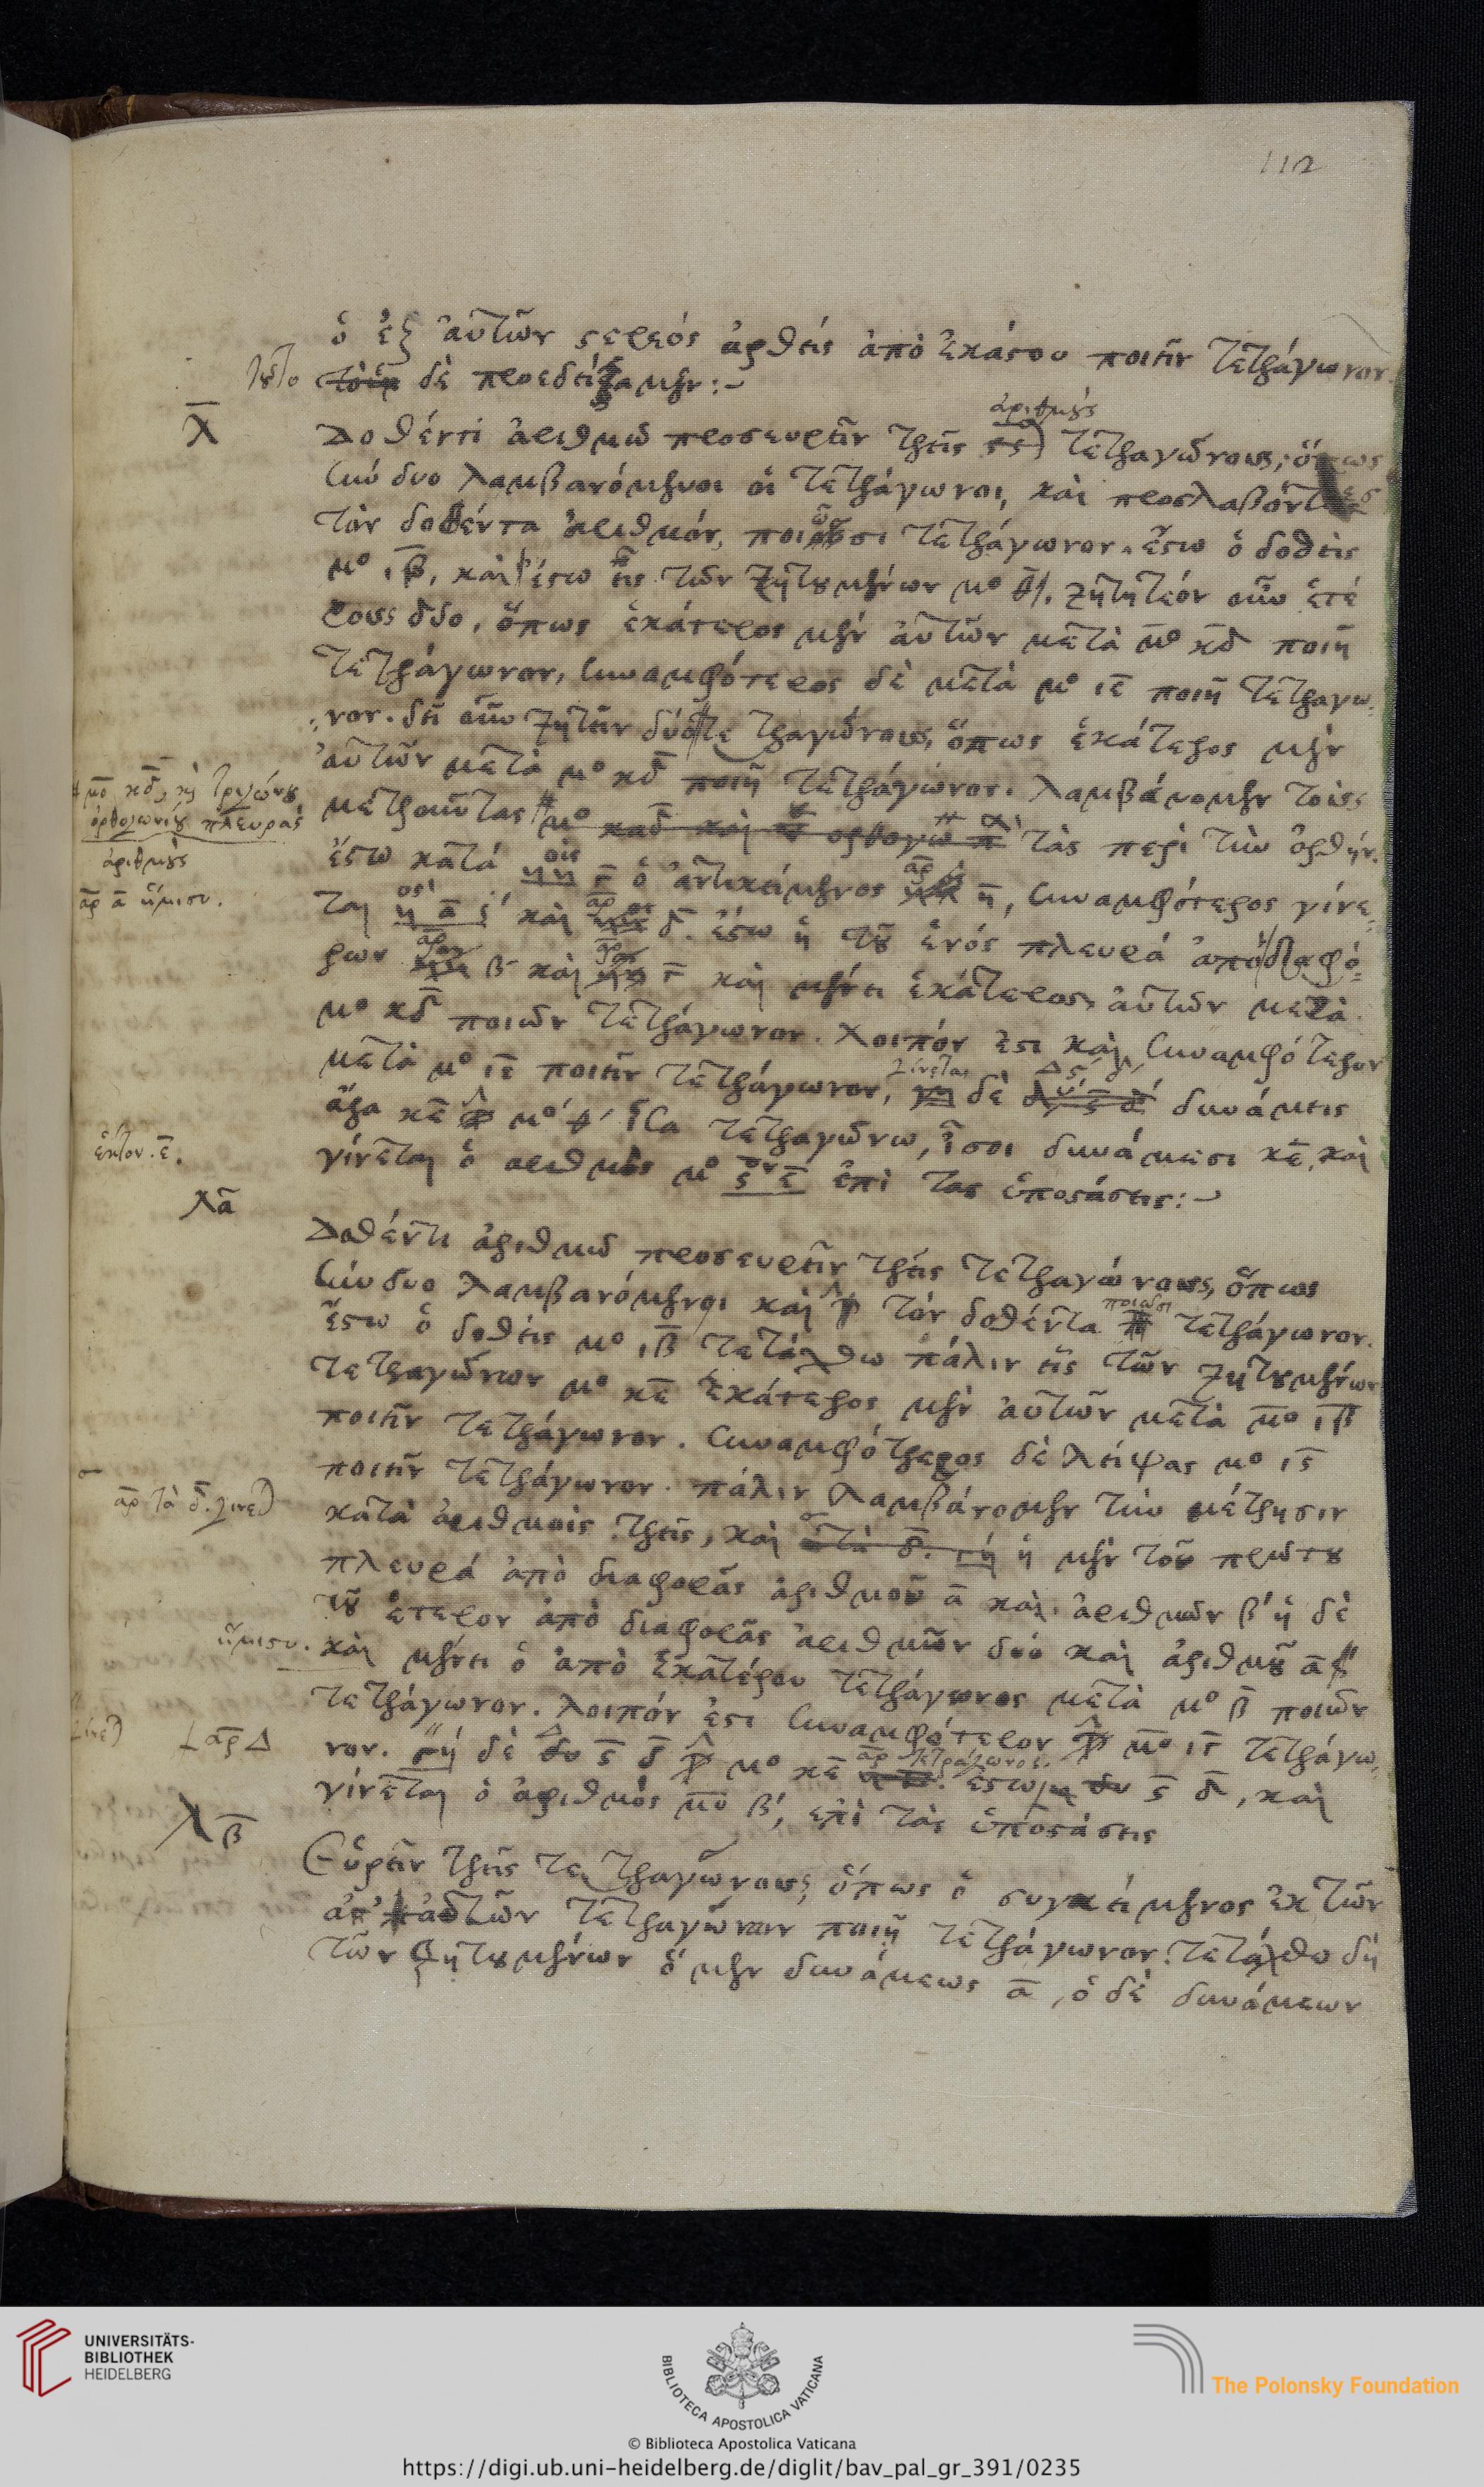 112
ὁ ἐξ αὐτῶν στερεός ἀρθεὶς ἀπὸ ἑκάστου ποιεῖν τετράγωνον.
τοῦτο δὲ προεδείξαμεν:~
λ
Δοθέντι ἀριθμῷ προσευρεῖν τρεῖς ἀριθμοὺς τετραγώνους, ὅπως
σὺν δυο λαμβανόμενοι οἱ τετράγωνοι, καὶ προσλαβόντες
τὸν δοθέντα ἀριθμόν, ποιῶσι τετράγωνον. ἔστω ὁ δοθεὶς
μο ιβ, καὶ ἔστω εἷς τῶν ζητουμένων μο θ. ζητητέον οὖν ἑτέ
ρους δυο, ὅπως ἑκάτερος μὲν αὐτῶν μετὰ μο κδ ποιῇ
τετράγωνον, συναμφότερος δὲ μετὰ μο ιε ποιῇ τετραγω
νον. δεῖ οὖν ζητεῖν δύο τετραγώνους, ὅπως ἑκάτερος μὲν
αὐτῶν μετὰ μο κδ ποιῇ τετράγωνον. λαμβάνομεν τοὺς
μετροῦντας μο κδ, καὶ τριγώνου
ὀρθογωνίου πλευρὰς τὰς περὶ τὴν ὀρθήν.
ἀριθμοὺς
ἔστω κατά γ ὁ ἀντικείμενος η, συναμφότερος γίνε
αρ α ἥμισυ.
ται καὶ δ. ἔστω ἡ τοῦ ἑνός πλευρά ἀπὸ διαφό
ρων β καὶ γ καὶ μένει ἑκάτερος αὐτῶν μετὰ
μο κδ ποιῶν τετράγωνον. λοιπόν ἐστι καὶ συναμφότερον
μετὰ μο ιε ποιεῖν τετράγωνον, γίνεται δὲ δυνάμεις
ἄρα κε μο θ ἴσα τετραγώνω, ἴσοι δυνάμεσι κε, καὶ
ἕκτον. ε.
γίνεται ὁ αριθμὸς μο ε ἐπὶ τας ὑποστάσεις:~
λα
Δοθέντι ἀριθμῷ προσευρεῖν τρεῖς τετραγώνους, ὅπως
σύνδυο λαμβανόμενοι καὶ τὸν δοθέντα ποιῶσι τετράγωνον.
ἔστω ὁ δοθεὶς μο ιβ τετάχθω πάλιν εἷς τῶν ζητουμένων
τετραγώνων μο κε ἑκάτερος μὲν αὐτῶν μετὰ μο ιβ
ποιεῖν τετράγωνον. συναμφότερος δὲ λείψας μο ιγ
ποιεῖν τετράγωνον. πάλιν λαμβάνομεν τὴν μέτρησιν
αρ τὰ δ. γίνεται
κατὰ ἀριθμοὺς τρεῖς, καὶ ἡ μὲν τοῦ πρώτου
πλευρά ἀπὸ διαφορᾶς ἀριθμοῦ α καὶ ἀριθμῶν β ἡ δὲ
τοῦ ἑτέρου ἀπὸ διαφορᾶς ἀριθμῶν δυό καὶ ἀριθμοῦ α
ἥμισυ.
καὶ μένει ὁ ἀπὸ ἑκατέρου τετράγωνος μετὰ μο β ποιῶν
τετράγωνον. λοιπόν ἐστι συναμφότερον μο ιγ τετράγω
νον. δὲ δ μο κε τετράγωνος. ἔστω δ, καὶ
γίνεται ὁ ἀριθμός μο β, ἐπὶ τὰς ὑποστάσεις
λβ
Εὑρεῖν τρεῖς τετραγώνους, ὅπως ὁ συγκείμενος ἐκ τῶν
ἀπ' αὐτῶν τετραγώνων ποιῇ τετράγωνον. τετάχθω δή
τῶν ζητουμένων ὁ μὲν δυνάμεως α, ὁ δὲ δυνάμεων
UNIVERSITÄTS-
BIBLIOTHEK
HEIDELBERG
BIBLIOTECA APOSTOLICA VATICANA
The Polonsky Foundation
© Biblioteca Apostolica Vaticana
https://digi.ub.uni-heidelberg.de/diglit/bav_pal_gr_391/0235